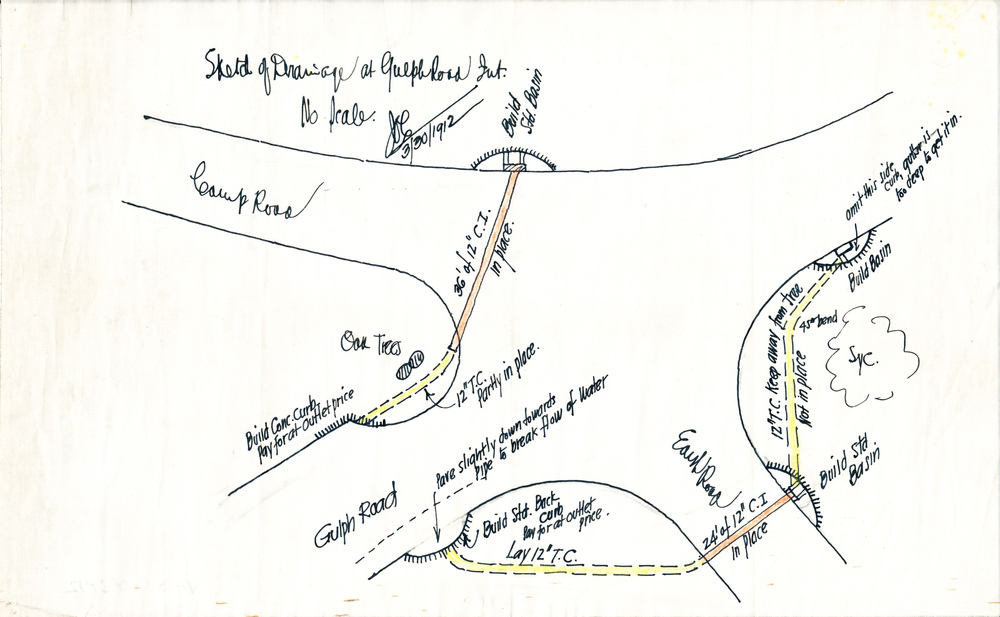 Sketch of Drainage at Gulph Road Int.
No Scale.
3/30/1912
Build
Std. Basin
Camp Road
36' of 12" C.I.
in place.
omit this side
curb, gutter is
too deep to get it in.
Build Basin
45° bend
Syc.
12" T.C. Keep away from tree
Not in place
Oak Trees
12" T.C.
Partly in place.
Build Conc. curb
Pay for at outlet price
Pave slightly down towards
pipe to break flow of water
Gulph Road
Build Std. Back
curb
Pay for at outlet
price.
Lay 12" T.C.
Road
24' of 12" C.I
in place
Build Std
Basin